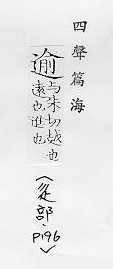 四聲篇海
逾
与朱切越也
遠也進也
(辵部, P196)